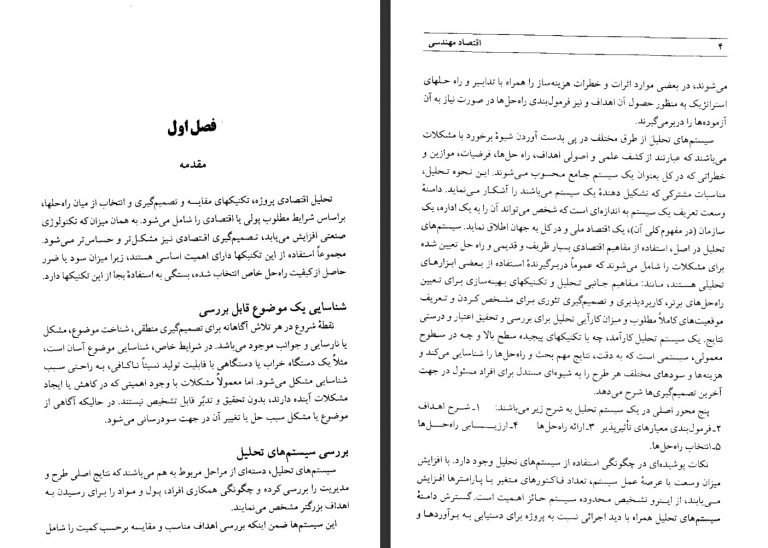 فصل اول
مقدمه
تحلیل اقتصادی پروژه، تکنیکهای مقایسه و تصمیم‌گیری و انتخاب از میان راه‌حلها،
براساس شرایط مطلوب پولی یا اقتصادی را شامل می‌شود. به همان میزان که تکنولوژی
صنعتی افزایش می‌یابد، تصمیم‌گیری اقتصادی نیز مشکل‌تر و حساس‌تر می‌شود.
مجموعاً استفاده از این تکنیکها دارای اهمیت اساسی هستند، زیرا میزان سود یا ضرر
حاصل از کیفیت راه‌حل خاص انتخاب شده، بستگی به استفادهٔ بجا از این تکنیکها دارد.
شناسایی یک موضوع قابل بررسی
نقطهٔ شروع در هر تلاش آگاهانه برای تصمیم‌گیری منطقی، شناخت موضوع، مشکل
یا نارسایی و جوانب موجود می‌باشد. در شرایط خاص، شناسایی موضوع آسان است،
مثلاً یک دستگاه خراب یا دستگاهی با قابلیت تولید نسبتاً ناکافی، به راحتی سبب
شناسایی مشکل می‌شود. اما معمولاً مشکلات با وجود اهمیتی که در کاهش یا ایجاد
مشکلات آینده دارند، بدون تحقیق و تدبّر قابل تشخیص نیستند. در حالیکه آگاهی از
موضوع یا مشکل سبب حل یا تغییر آن در جهت سودرسانی می‌شود.
بررسی سیستم‌های تحلیل
سیستم‌های تحلیل، دسته‌ای از مراحل مربوط به هم می‌باشند که نتایج اصلی طرح و
مدیریت را بررسی کرده و چگونگی همکاری افراد، پول و مواد را برای رسیدن به
اهداف بزرگتر مشخص می‌نمایند.
این سیستم‌ها ضمن اینکه بررسی اهداف مناسب و مقایسه برحسب کمیت را شامل
۴ اقتصاد مهندسی
می‌شوند، در بعضی موارد اثرات و خطرات هزینه‌ساز را همراه با تدابیر و راه حلهای
استراتژیک به منظور حصول آن اهداف و نیز فرمول‌بندی راه‌حل‌ها در صورت نیاز به آن
آزموده‌ها را دربرمی‌گیرند.
سیستم‌های تحلیل از طرق مختلف در پی بدست آوردن شیوهٔ برخورد با مشکلات
می‌باشند که عبارتند از کشف علمی و اصولی اهداف، راه حل‌ها، فرضیات، موازین و
خطراتی که در کل بعنوان یک سیستم جامع محسوب می‌شوند. این نحوه تحلیل،
مناسبات مشترکی که تشکیل دهندهٔ یک سیستم می‌باشند را آشکار می‌نماید. دامنهٔ
وسعت تعریف یک سیستم به اندازه‌ای است که شخص می‌تواند آن را به یک اداره، یک
سازمان (در مفهوم کلی آن)، یک اقتصاد ملی و در کل به جهان اطلاق نماید. سیستم‌های
تحلیل در اصل، استفاده از مفاهیم اقتصادی بسیار ظریف و قدیمی و راه حل تعیین شده
برای مشکلات را شامل می‌شوند که عموماً دربرگیرندهٔ استفاده از بعضی ابزارهای
تحلیلی هستند، مانند: مفاهیم جانبی تحلیل و تکنیکهای بهینه‌سازی برای تعیین
راه‌حل‌های برتر، کاربردپذیری و تصمیم‌گیری تئوری برای مشخص کردن و تعریف
موقعیت‌های کاملاً مطلوب و میزان کارآیی تحلیل برای بررسی و تحقیق اعتبار و درستی
نتایج. یک سیستم تحلیل کارآمد، چه با تکنیکهای پیچیده سطح بالا و چه در سطوح
معمولی، سیستمی است که به دقت، نتایج مهم بحث و راه‌حل‌ها را شناسایی می‌کند و
هزینه‌ها و سودهای مختلف هر طرح را به شیوه‌ای مستدل برای افراد مسئول در جهت
آخرین تصمیم‌گیری‌ها شرح می‌دهد.
پنج محور اصلی در یک سیستم تحلیل به شرح زیر می‌باشند: ۱ـ شرح اهداف
۲ـ فرمول‌بندی معیارهای تأثیرپذیر ۳ـ ارائه راه‌حل‌ها ۴ـ ارزیـــــابی راه‌حــل‌ها
۵ـ انتخاب راه‌حل‌ها.
نکات پوشیده‌ای در چگونگی استفاده از سیستم‌های تحلیل وجود دارد. با افزایش
میزان وسعت یا عرصهٔ عمل سیستم، تعداد فاکتورهای متغیر یا پارامترها افزایش
می‌یابند، از اینرو تشخیص محدوده سیستم حائز اهمیت است. گسترش دامنهٔ
سیستم‌های تحلیل همراه با دید اجرائی نسبت به پروژه برای دستیابی به برآوردها و